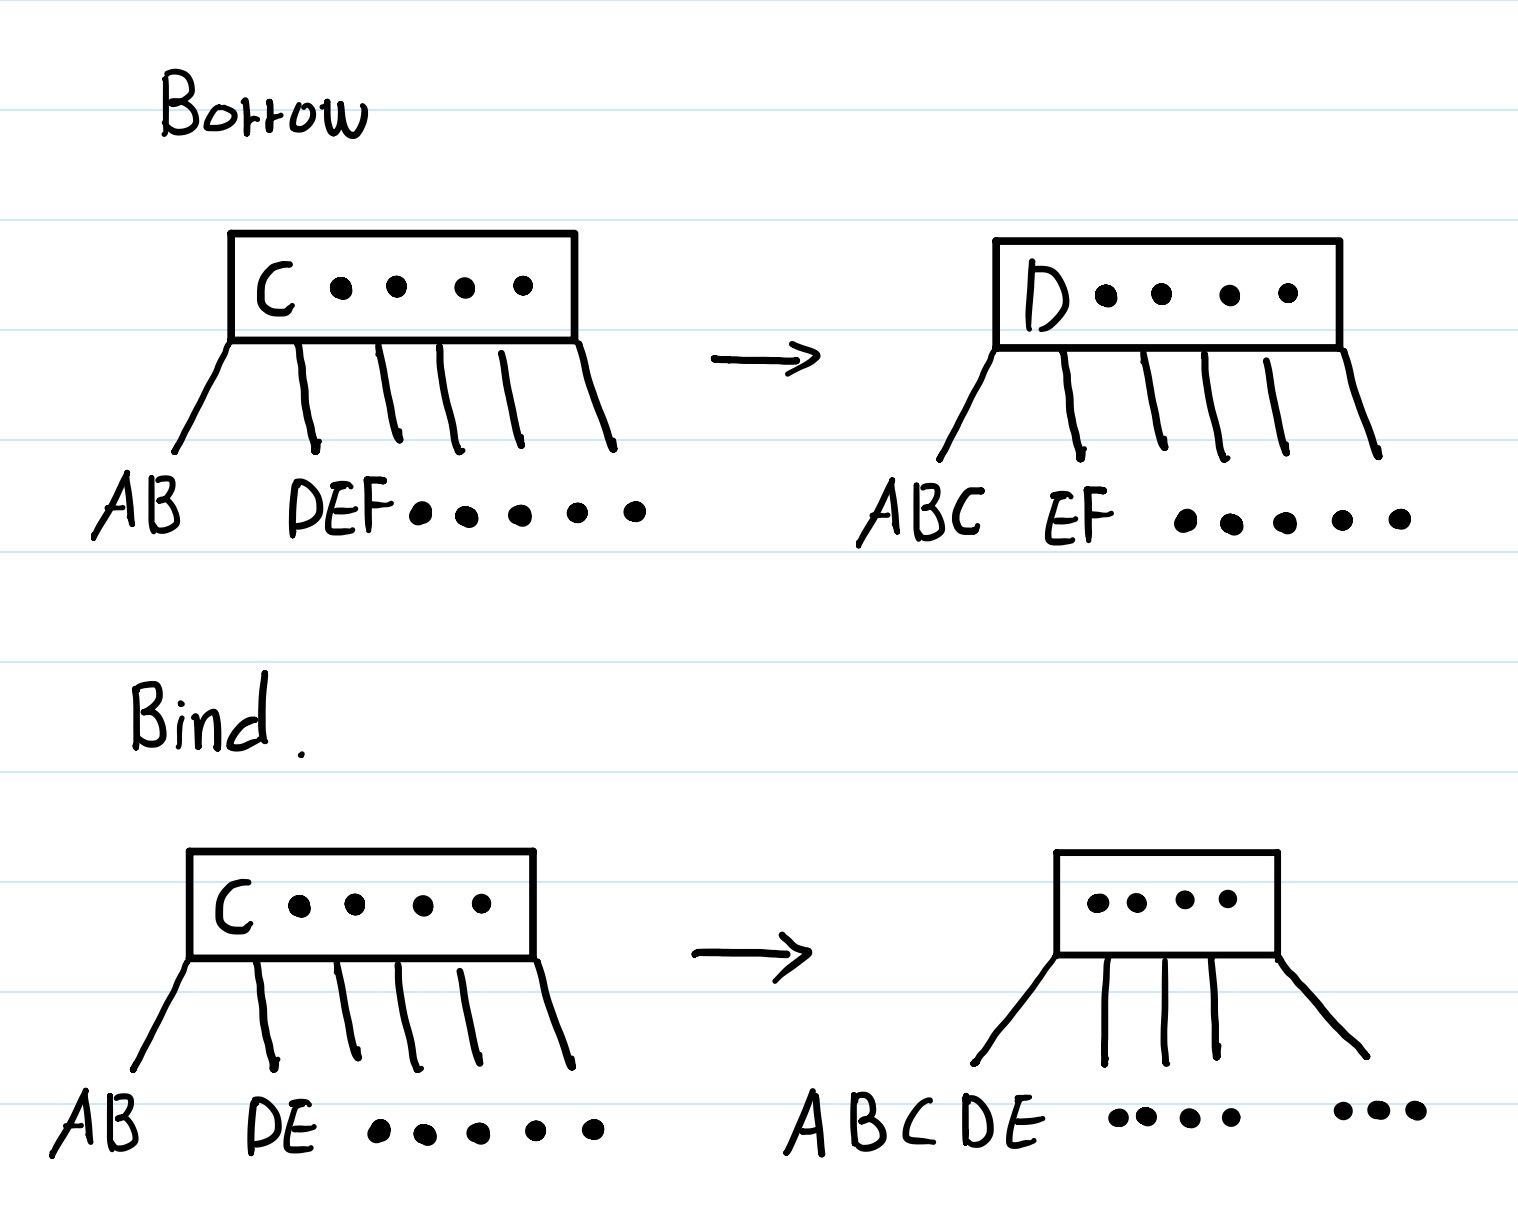 Borrow
C • • • • → D • • • •
AB DEF • • • • • ABC EF • • • • •
Bind.
C • • • • → • • • •
AB DE • • • • • ABCDE • • • • • • •